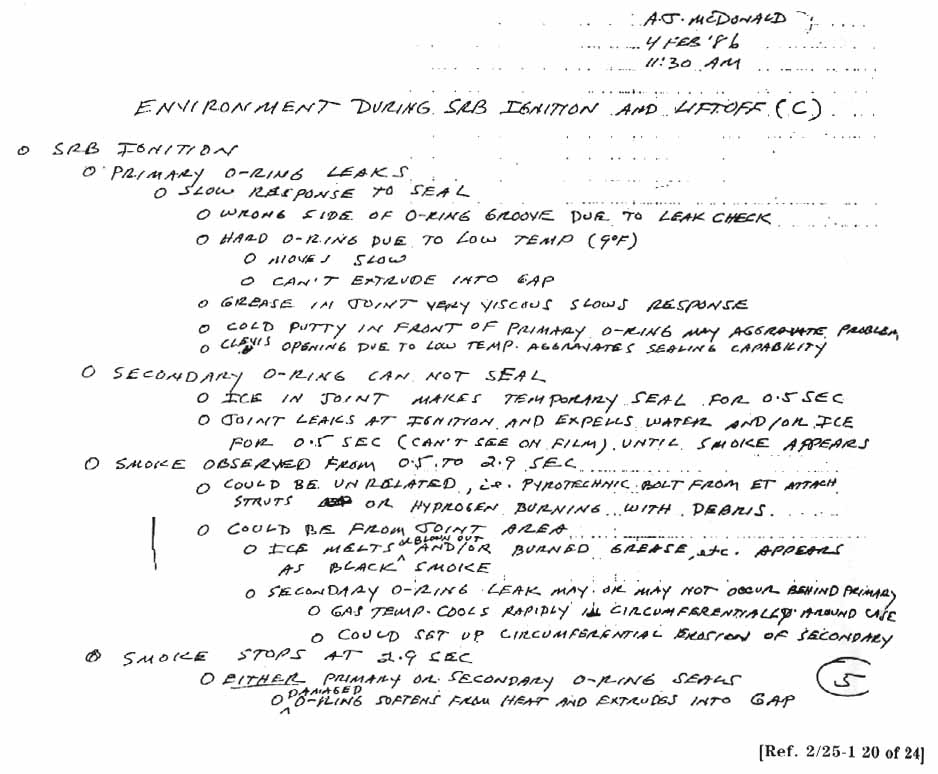 A.J. McDONALD
4 FEB '86
11:30 AM
ENVIRONMENT DURING SRB IGNITION AND LIFTOFF (C)
o SRB IGNITION
o PRIMARY O-RING LEAKS
o SLOW RESPONSE TO SEAL
o WRONG SIDE OF O-RING GROOVE DUE TO LEAK CHECK
o HARD O-RING DUE TO LOW TEMP (9°F)
o MOVES SLOW
o CAN'T EXTRUDE INTO GAP
o GREASE IN JOINT VERY VISCOUS SLOWS RESPONSE
o COLD PUTTY IN FRONT OF PRIMARY O-RING MAY AGGRAVATE PROBLEM
o CLEVIS OPENING DUE TO LOW TEMP. AGGRAVATES SEALING CAPABILITY
o SECONDARY O-RING CAN NOT SEAL
o ICE IN JOINT MAKES TEMPORARY SEAL FOR 0.5 SEC
o JOINT LEAKS AT IGNITION AND EXPELLS WATER AND/OR ICE
FOR 0.5 SEC (CAN'T SEE ON FILM) UNTIL SMOKE APPEARS
o SMOKE OBSERVED FROM 0.5 TO 2.9 SEC
o COULD BE UNRELATED, i.e. PYROTECHNIC BOLT FROM ET ATTACH
STRUTS OR HYDROGEN BURNING WITH DEBRIS.
o COULD BE FROM JOINT AREA
o ICE MELTS OR BLOWN OUT AND/OR BURNED GREASE, etc. APPEARS
AS BLACK SMOKE
o SECONDARY O-RING LEAK MAY OR MAY NOT OCCUR BEHIND PRIMARY
o GAS TEMP. COOLS RAPIDLY CIRCUMFERENTIALLY AROUND CASE
o COULD SET UP CIRCUMFERENTIAL EROSION OF SECONDARY
o SMOKE STOPS AT 2.9 SEC
o EITHER PRIMARY OR SECONDARY O-RING SEALS
o DAMAGED O-RING SOFTENS FROM HEAT AND EXTRUDES INTO GAP
5
[Ref. 2/25-1 20 of 24]